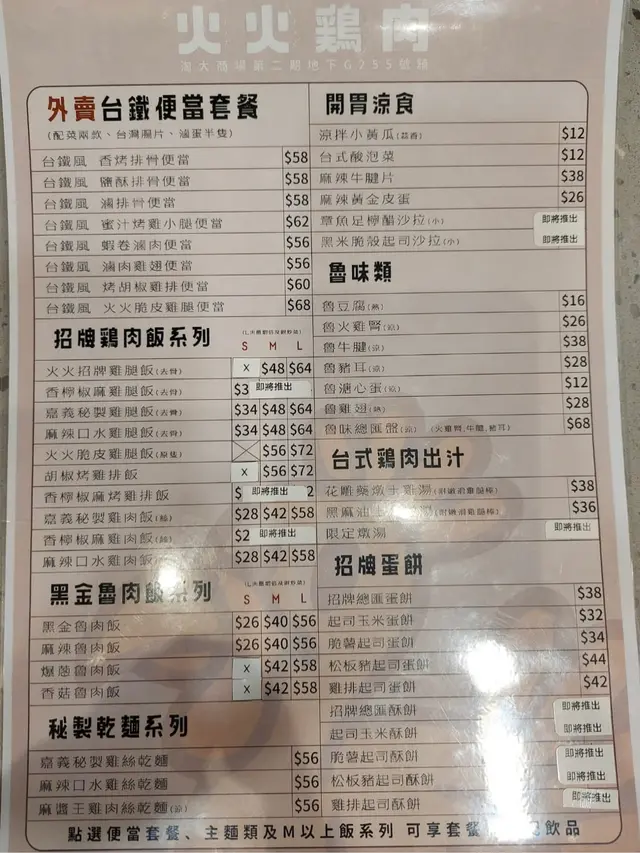 火火鷄肉
淘大商場第二期地下G255號舖
外賣台鐵便當套餐
(配菜兩款、台灣腸片、滷蛋半隻)
台鐵風 香烤排骨便當 $58
台鐵風 鹽酥排骨便當 $58
台鐵風 滷排骨便當 $58
台鐵風 蜜汁烤雞小腿便當 $62
台鐵風 蝦卷滷肉便當 $56
台鐵風 滷肉雞翅便當 $56
台鐵風 烤胡椒雞排便當 $60
台鐵風 火火脆皮雞腿便當 $68
招牌鷄肉飯系列
S M L
火火招牌雞腿飯(去骨) x $48 $64
香檸椒麻雞腿飯(去骨) $3 即將推出
嘉義秘製雞腿飯(去骨) $34 $48 $64
麻辣口水雞腿飯(去骨) $34 $48 $64
火火脆皮雞腿飯(原隻) $56 $72
胡椒烤雞排飯 x $56 $72
香檸椒麻烤雞排飯 $ 即將推出 2
嘉義秘製雞肉飯(絲) $28 $42 $58
香檸椒麻雞肉飯(絲) $2 即將推出
麻辣口水雞肉飯(絲) $28 $42 $58
黑金魯肉飯系列
S M L
黑金魯肉飯 $26 $40 $56
麻辣魯肉飯 $26 $40 $56
爆蔥魯肉飯 x $42 $58
香菇魯肉飯 x $42 $58
秘製乾麵系列
嘉義秘製雞絲乾麵 $56
麻辣口水雞絲乾麵 $56
麻醬王雞肉絲乾麵(涼) $56
開胃涼食
涼拌小黃瓜(蒜香) $12
台式酸泡菜 $12
麻辣牛腱片 $38
麻辣黃金皮蛋 $26
章魚足檸醋沙拉(小) 即將推出
黑米脆殼起司沙拉(小) 即將推出
魯味類
魯豆腐(熱) $16
魯火雞腎(涼) $26
魯牛腱(涼) $38
魯豬耳(涼) $28
魯溏心蛋(涼) $12
魯雞翅(熱) $28
魯味總匯盤(涼) (火雞腎,牛腱,豬耳) $68
台式鷄肉出汁
花雕藥燉土雞湯(附嫩滑雞髀棒) $38
黑麻油土 湯(附嫩滑雞髀棒) $36
限定燉湯 即將推出
招牌蛋餅
招牌總匯蛋餅 $38
起司玉米蛋餅 $32
脆薯起司蛋餅 $34
松板豬起司蛋餅 $44
雞排起司蛋餅 $42
招牌總匯酥餅 即將推出
起司玉米酥餅 即將推出
脆薯起司酥餅 即將推出
松板豬起司酥餅 即將推出
雞排起司酥餅 即將推出
點選便當套餐、主麵類及M以上飯系列 可享套餐 飲品